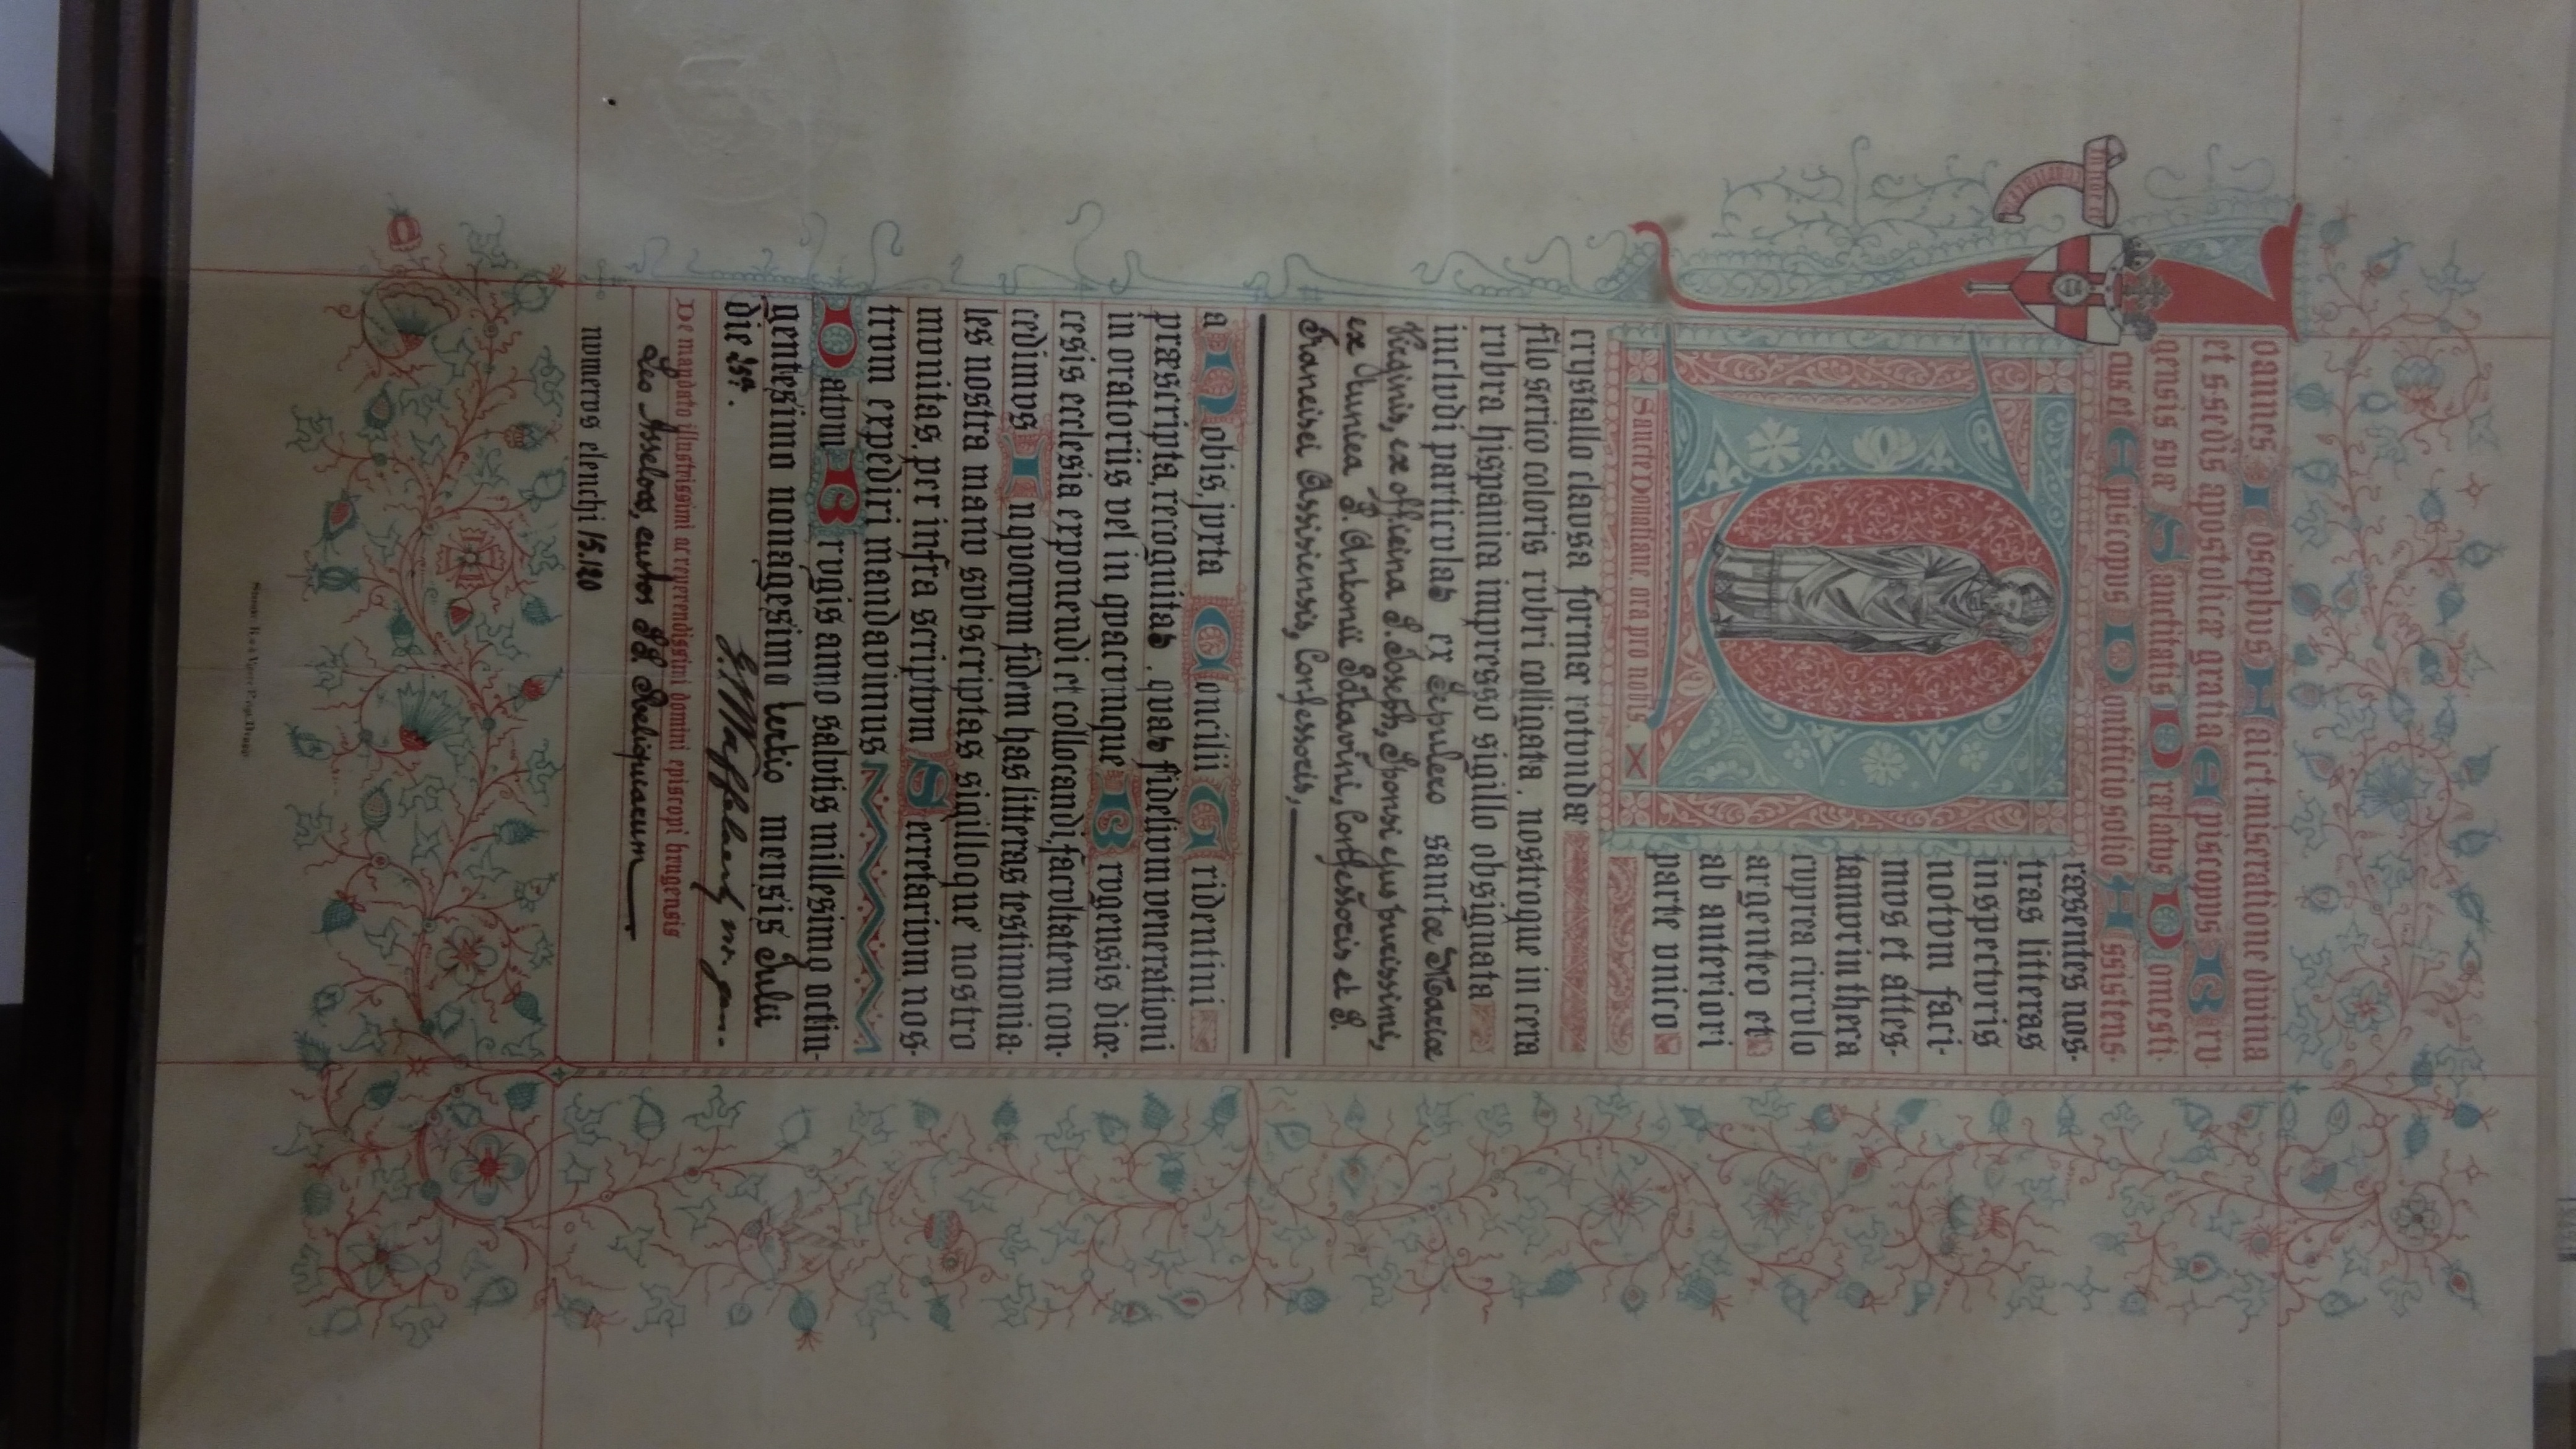 Ioannes Iosephus Faict miseratione divina
et ssedis apostolicæ gratia Episcopus Bru-
gensis suæ Sanctitatis Prælatus Domesti-
cus et Episcopus Pontificio solio Assistens.
Præsentes nos-
tras litteras
inspecturis
notum faci-
mus et attes-
tamur in thera
cuprea circulo
argenteo et
ab anteriori
parte unico
Sancte Donatiane, ora pro nobis
crystallo clausa formæ rotundæ
filo serico coloris rubri colligata, nostroque in cera
rubra hispanica impresso sigillo obsignata
includi particulas ex Sepulcro sanctæ Mariæ
Virginis, ex officina S. Joseph, Sponsi ejus purissimi,
ex tunica S. Antonii Patavini, Confessoris et S.
Francisci Assisiensis, Confessoris,
a Nobis, juxta Concilii Tridentini
præscripta, recognitas, quas fidelium venerationi
in oratoriis vel in quacumque Brugensis diœ-
cesis ecclesia exponendi et collocandi, facultatem con-
cedimus In quorum fidem has litteras testimonia-
les nostra manu subscriptas sigilloque nostro
munitas, per infra scriptum Secretarium nos-
trum expediri mandavimus
Datum Brugis anno salutis millesimo octin-
gentesimo nonagesimo tertio mensis Julii
die 25ª.
De mandato illustrissimi ac reverendissimi domini episcopi brugensis
Leo Asseloos, custos SS. Reliquiarum
numerus elenchi 15.120